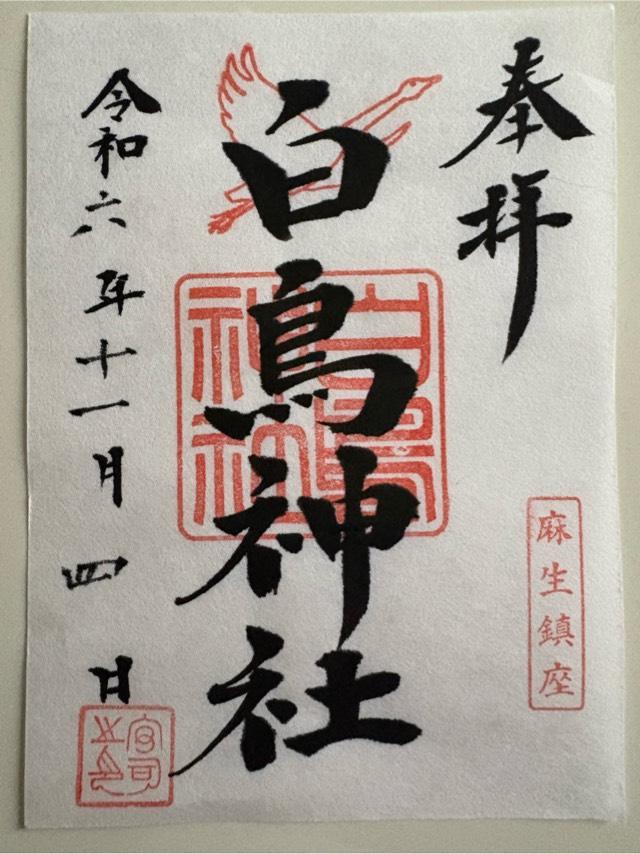 奉拝
麻生鎮座
白鳥神社
白鳥神社
令和六年十一月四日
宮司之印